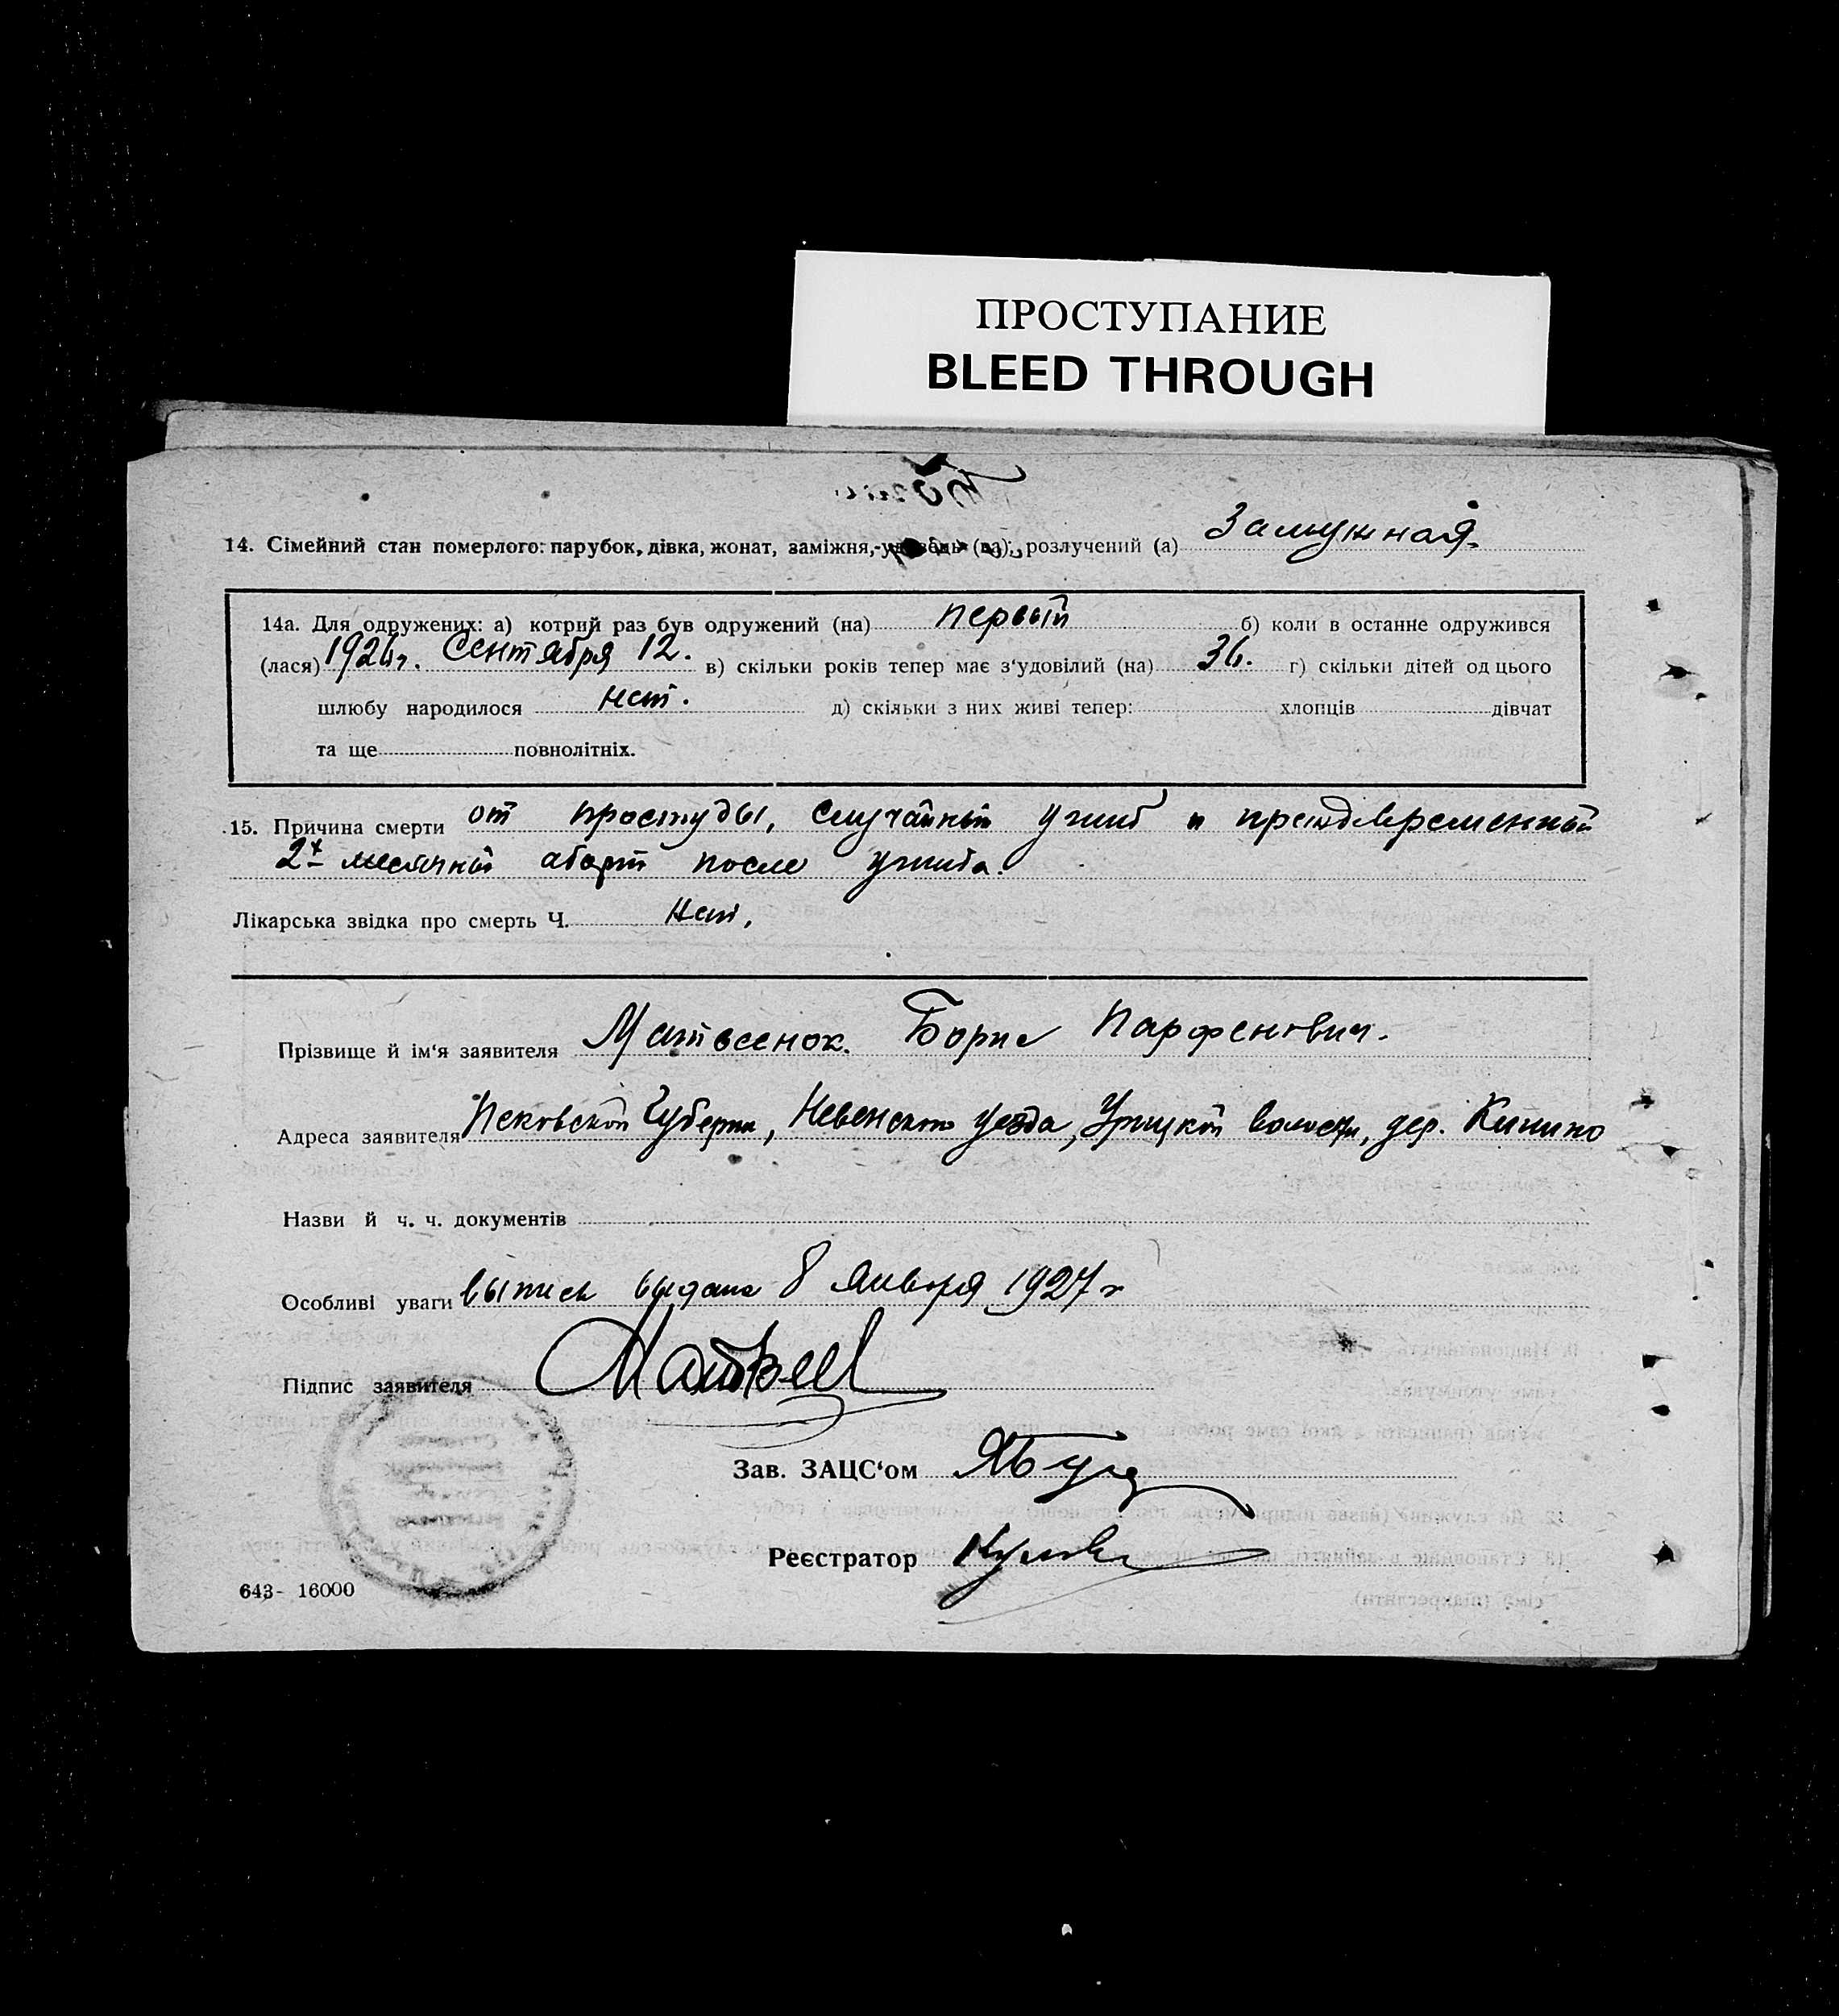 ПРОСТУПАНИЕ
BLEED THROUGH
14. Сімейний стан померлого: парубок, дівка, жонат, заміжня, удовець (ва), розлучений (а) Замужная.
14а. Для одружених: а) котрий раз був одружений (на) первый б) коли в останне одружився
(лася) 1926 г. Сентября 12. в) скільки років тепер має з'удовілий (на) 36. г) скільки дітей од цього
шлюбу народилося нет. д) скільки з них живі тепер: хлопців дівчат
та ще повнолітніх.
15. Причина смерти от простуды, случайный ушиб и преждевременный
2х месячный аборт после ушиба.
Лікарська звідка про смерть Ч. нет.
Прізвище й ім'я заявителя Матвеенок. Борис Парфенович.
Адреса заявителя Псковской Губернии, Невельского уезда, Урицкой волости, дер.
Назви й ч. ч. документів
Особливі уваги выпись выдана 8 января 1927 г
Підпис заявителя
Зав. ЗАЦС'ом
Реєстратор
643- 16000